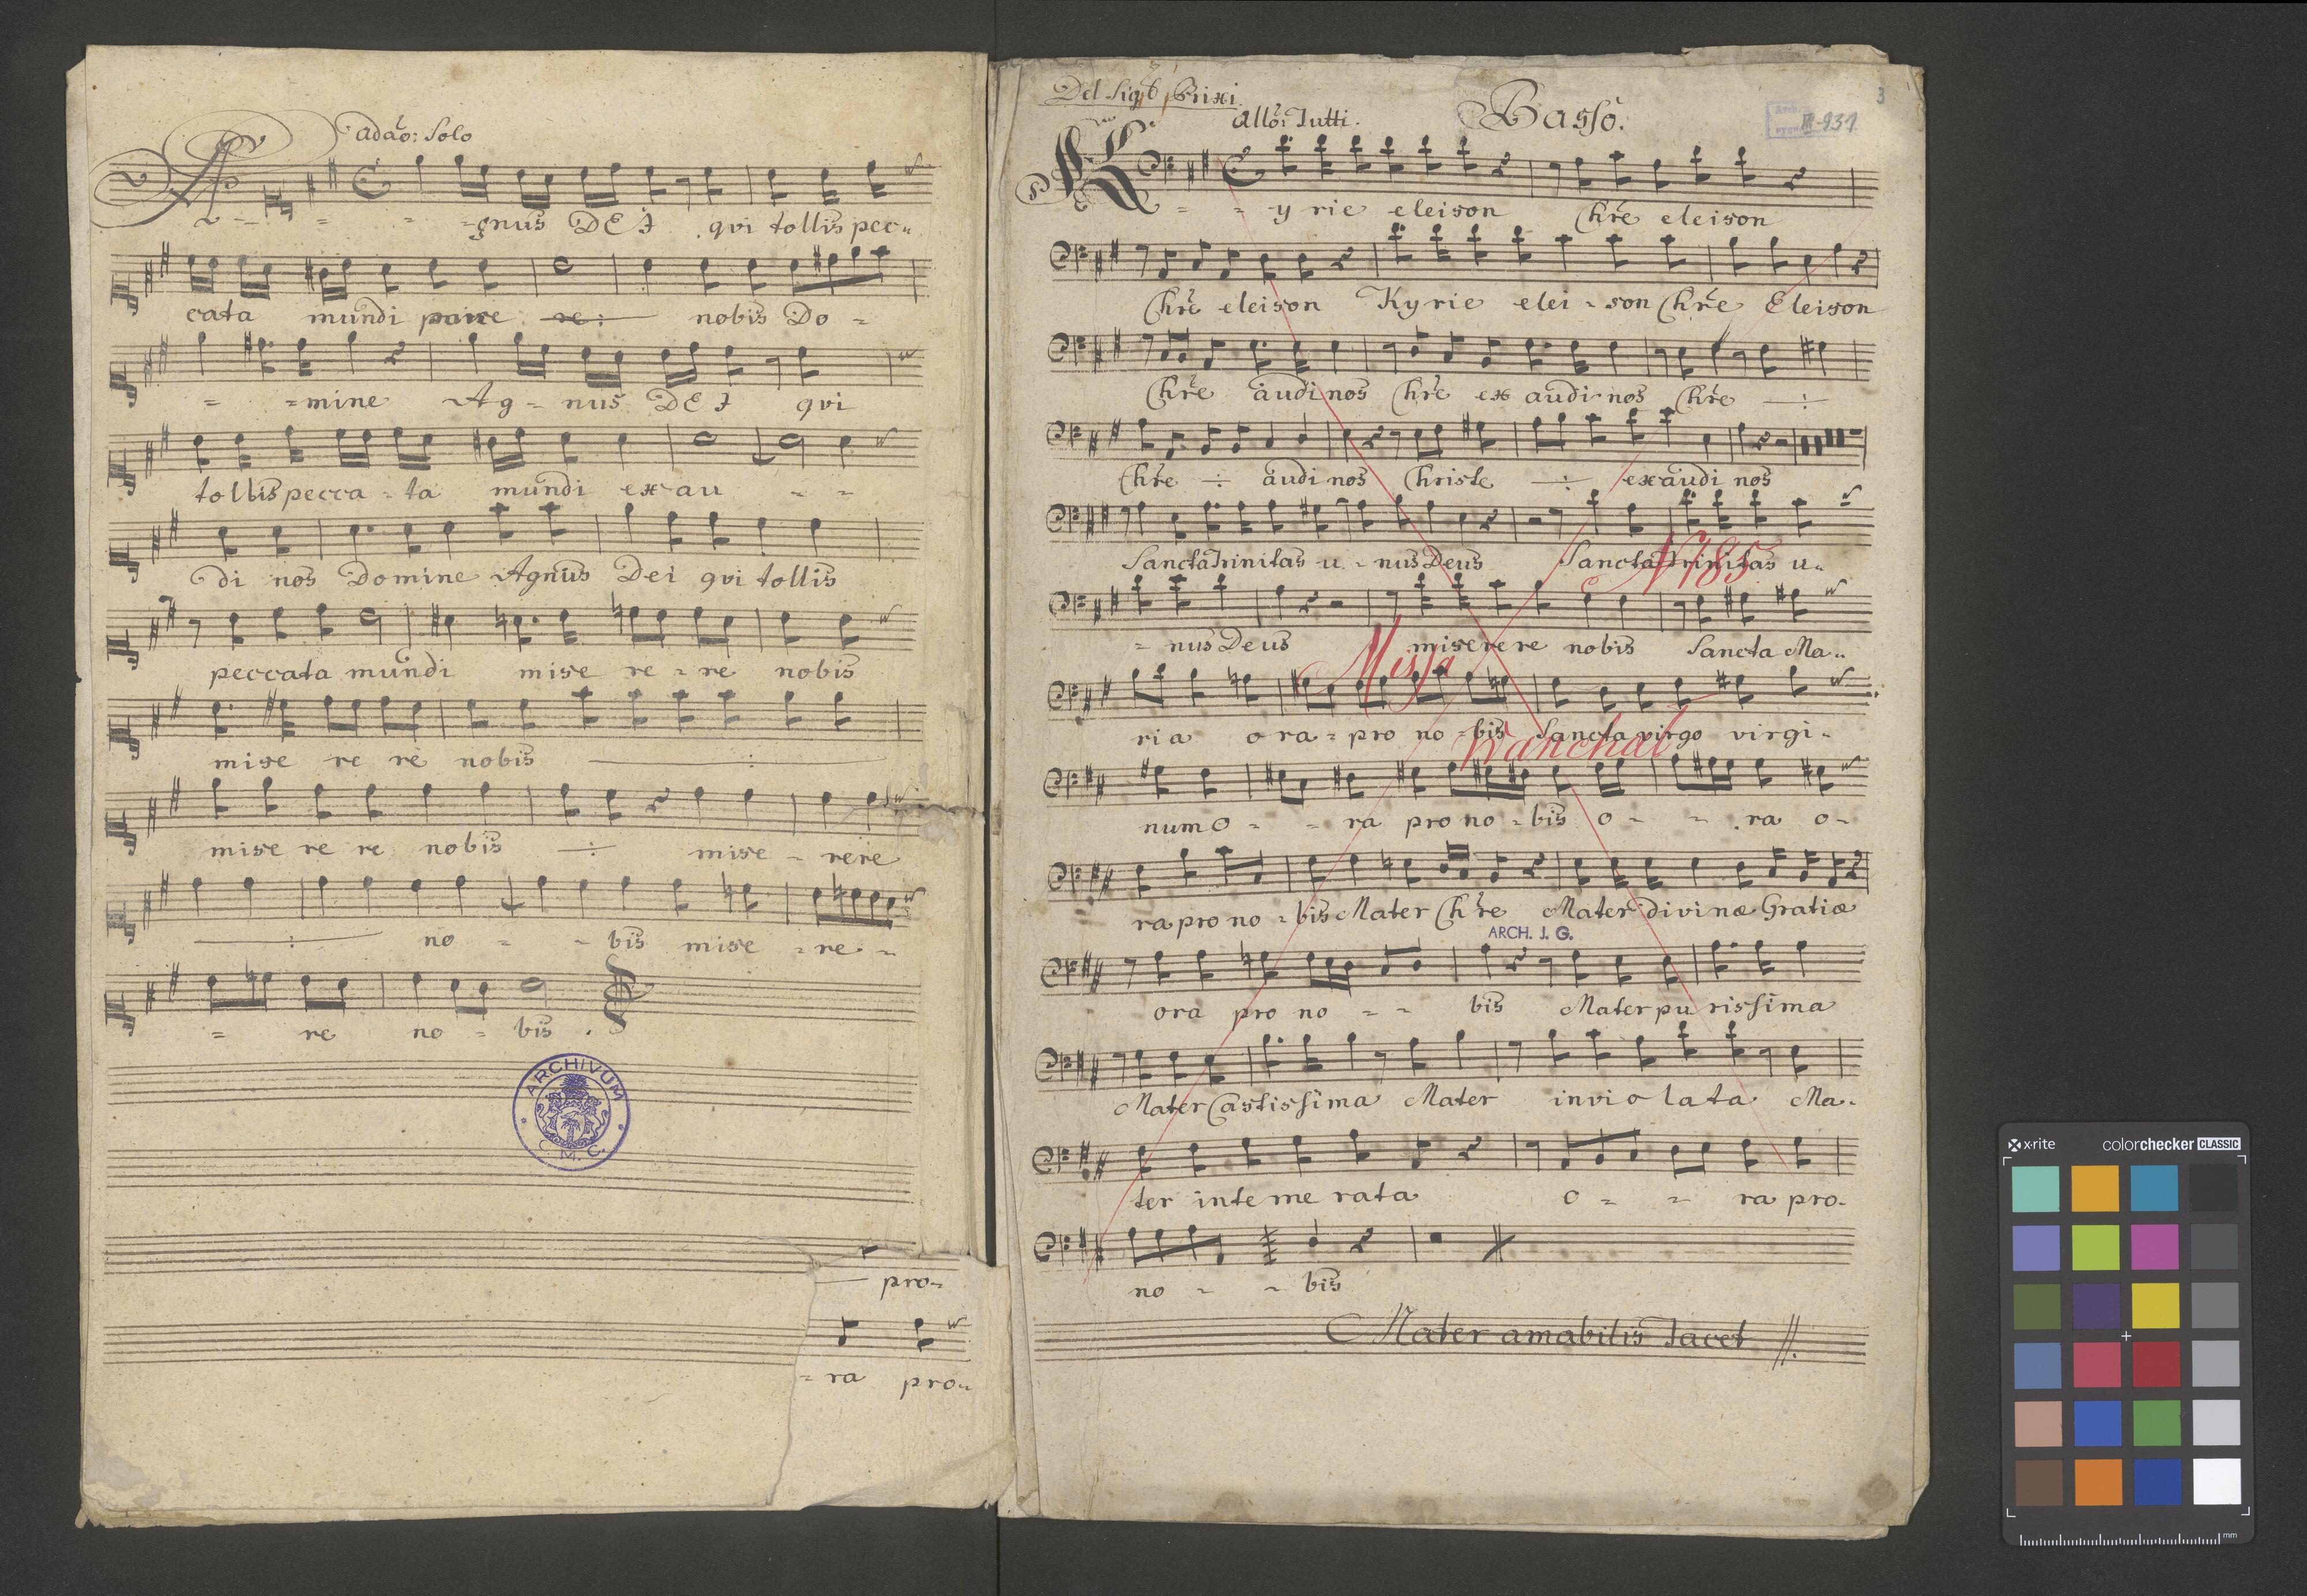 Adaõ: Solo
A - - - gnus DEI qvi tollis pec-
cata mundi parce re : nobis Do -
- -mine Ag - nus DEI qvi
tollis pecca - ta mundi exau - -
di nos Domine Agnus Dei qvi tollis
peccata mundi mise re - re nobis
mise re re nobis :
mise re re nobis : mise - rere
: no - - bis mise - re -
- re no - bis .
ARCHIVUM
M. C.
pro-
- ra pro-
Del Sig: Brixi
Allõ: Tutti.
Basso.
3
III-931
Ky - - y rie eleison Chrẽ eleison
Chrẽ eleison Kyrie elei - son Chrẽ Eleison
Chrẽ audi nos Chrẽ exaudi nos Chrẽ :
Chrẽ : audi nos Christe : exaudi nos
Sancta Trinitas u - nus Deus Sancta Trinitas u-
N 185
- nus Deus miserere nobis Sancta Ma-
Missa
ria ora - pro no - bis Sancta virgo virgi-
Wanchal
num o - - ra pro no - bis o - - ra o-
ra pro no - bis Mater Chrẽ Mater divinæ Gratiæ
ARCH. J. G.
ora pro no - - bis Mater purissima
Mater Castissima Mater inviolata Ma-
ter intemerata o - - ra pro-
no - - bis
Mater amabilis Tacet //.
x·rite colorchecker CLASSIC
mm